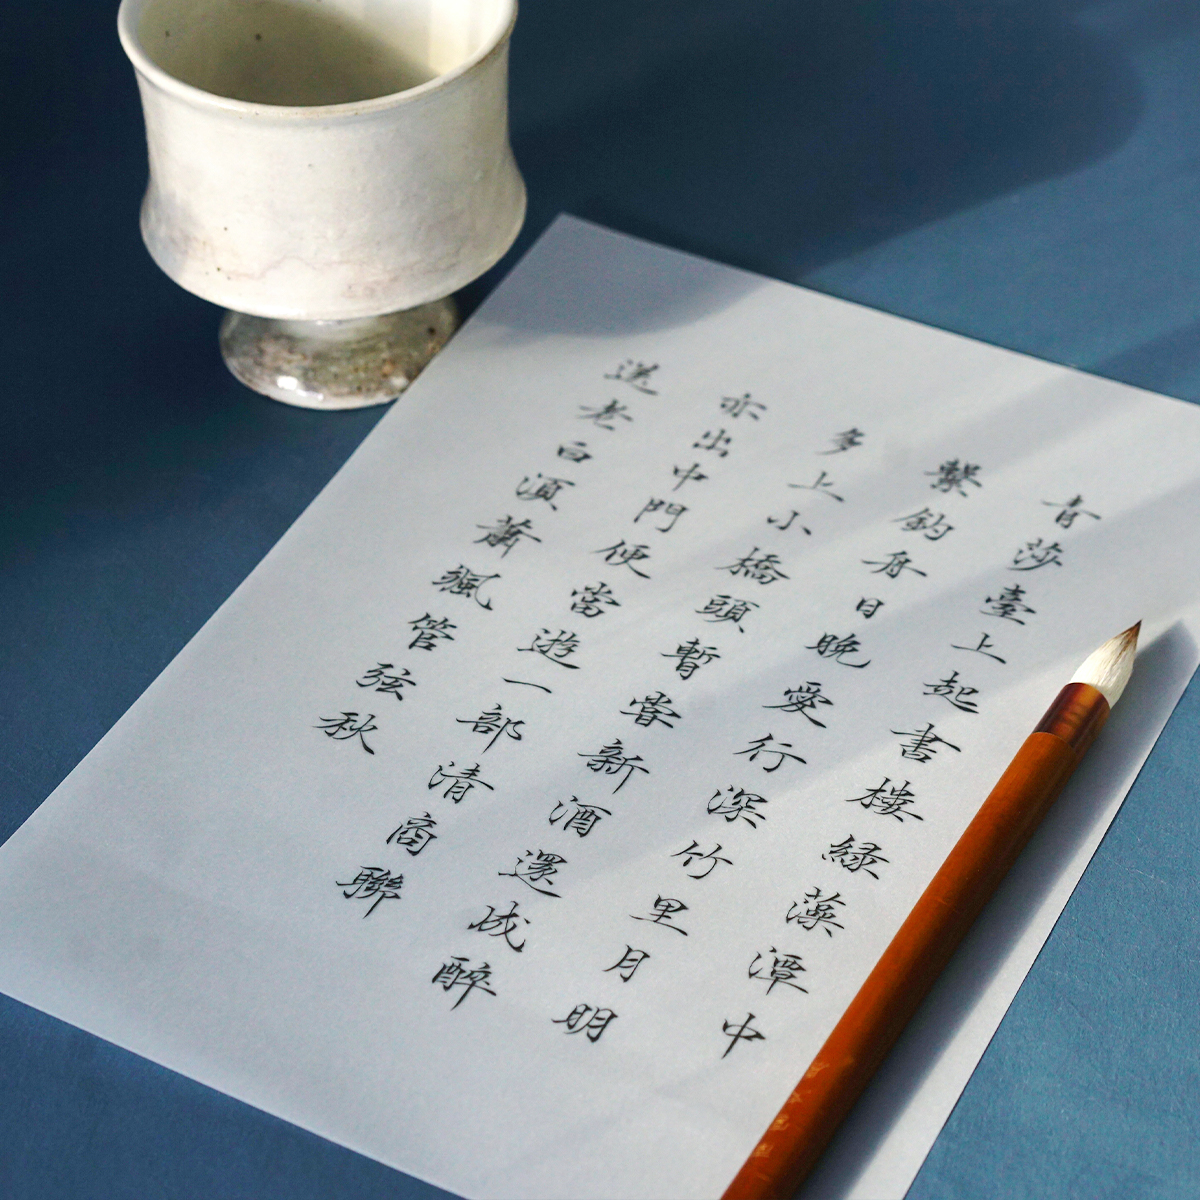 青莎臺上起書樓緑藻潭中
繫釣舟日晚愛行深竹里月明
多上小橋頭暫嘗新酒還成醉
亦出中門便當遊一部清商聯
送老白湏蕭颯管弦秋